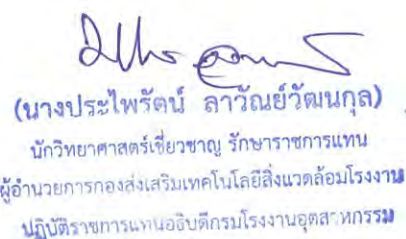 (นางประไพรัตน์ ลาวัณย์วัฒนกุล)
นักวิทยาศาสตร์เชี่ยวชาญ รักษาราชการแทน
ผู้อำนวยการกองส่งเสริมเทคโนโลยีสิ่งแวดล้อมโรงงาน
ปฏิบัติราชการแทนอธิบดีกรมโรงงานอุตสาหกรรม